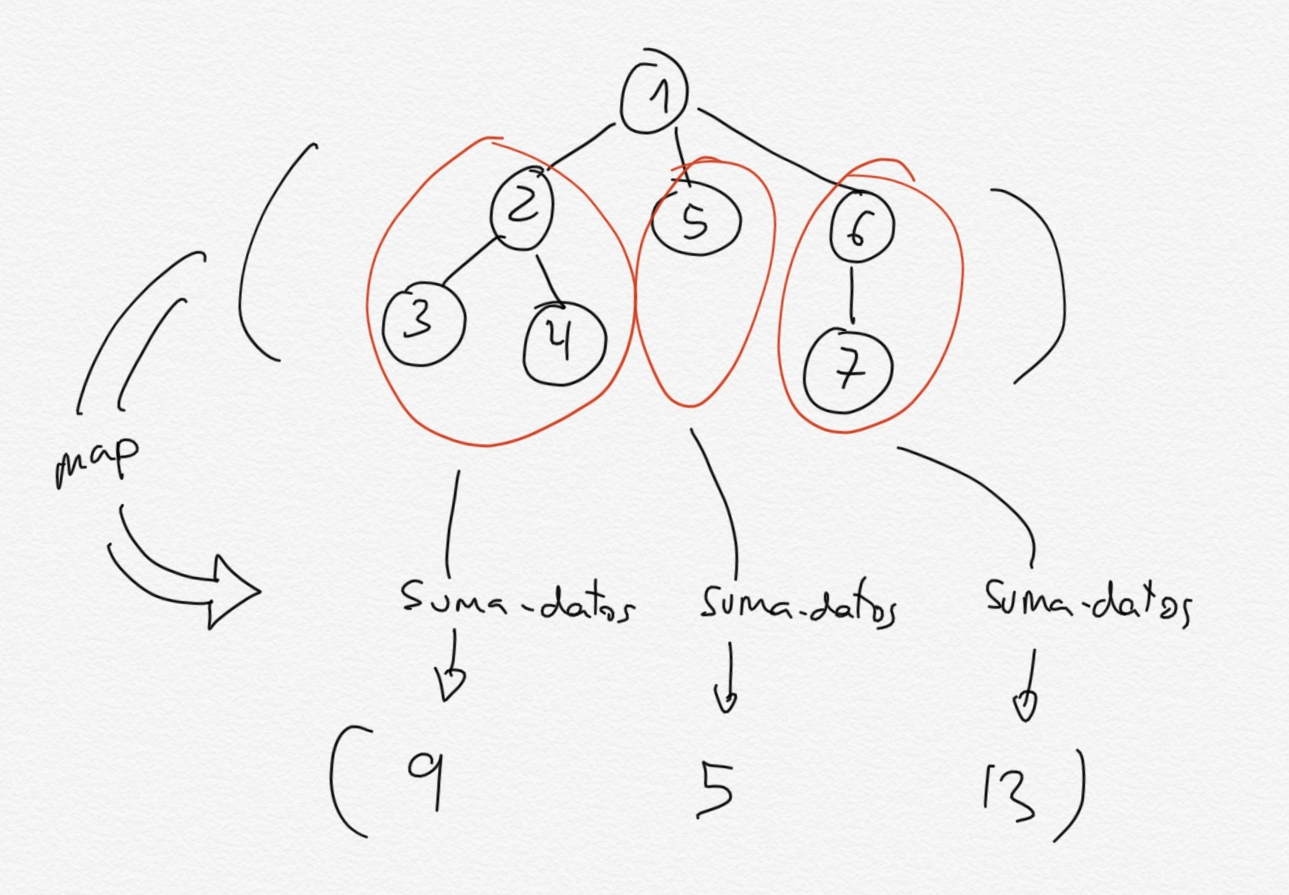 1
2 5 6
3 4 7
map
Suma-datos Suma-datos Suma-datos
( 9 5 13 )